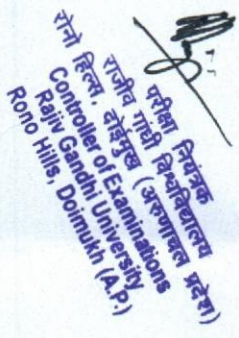 परीक्षा नियंत्रक
राजीव गांधी विश्वविद्यालय
रोनो हिल्स, दोईमुख (अरुणाचल प्रदेश)
Controller of Examinations
Rajiv Gandhi University
Rono Hills, Doimukh (A.P.)